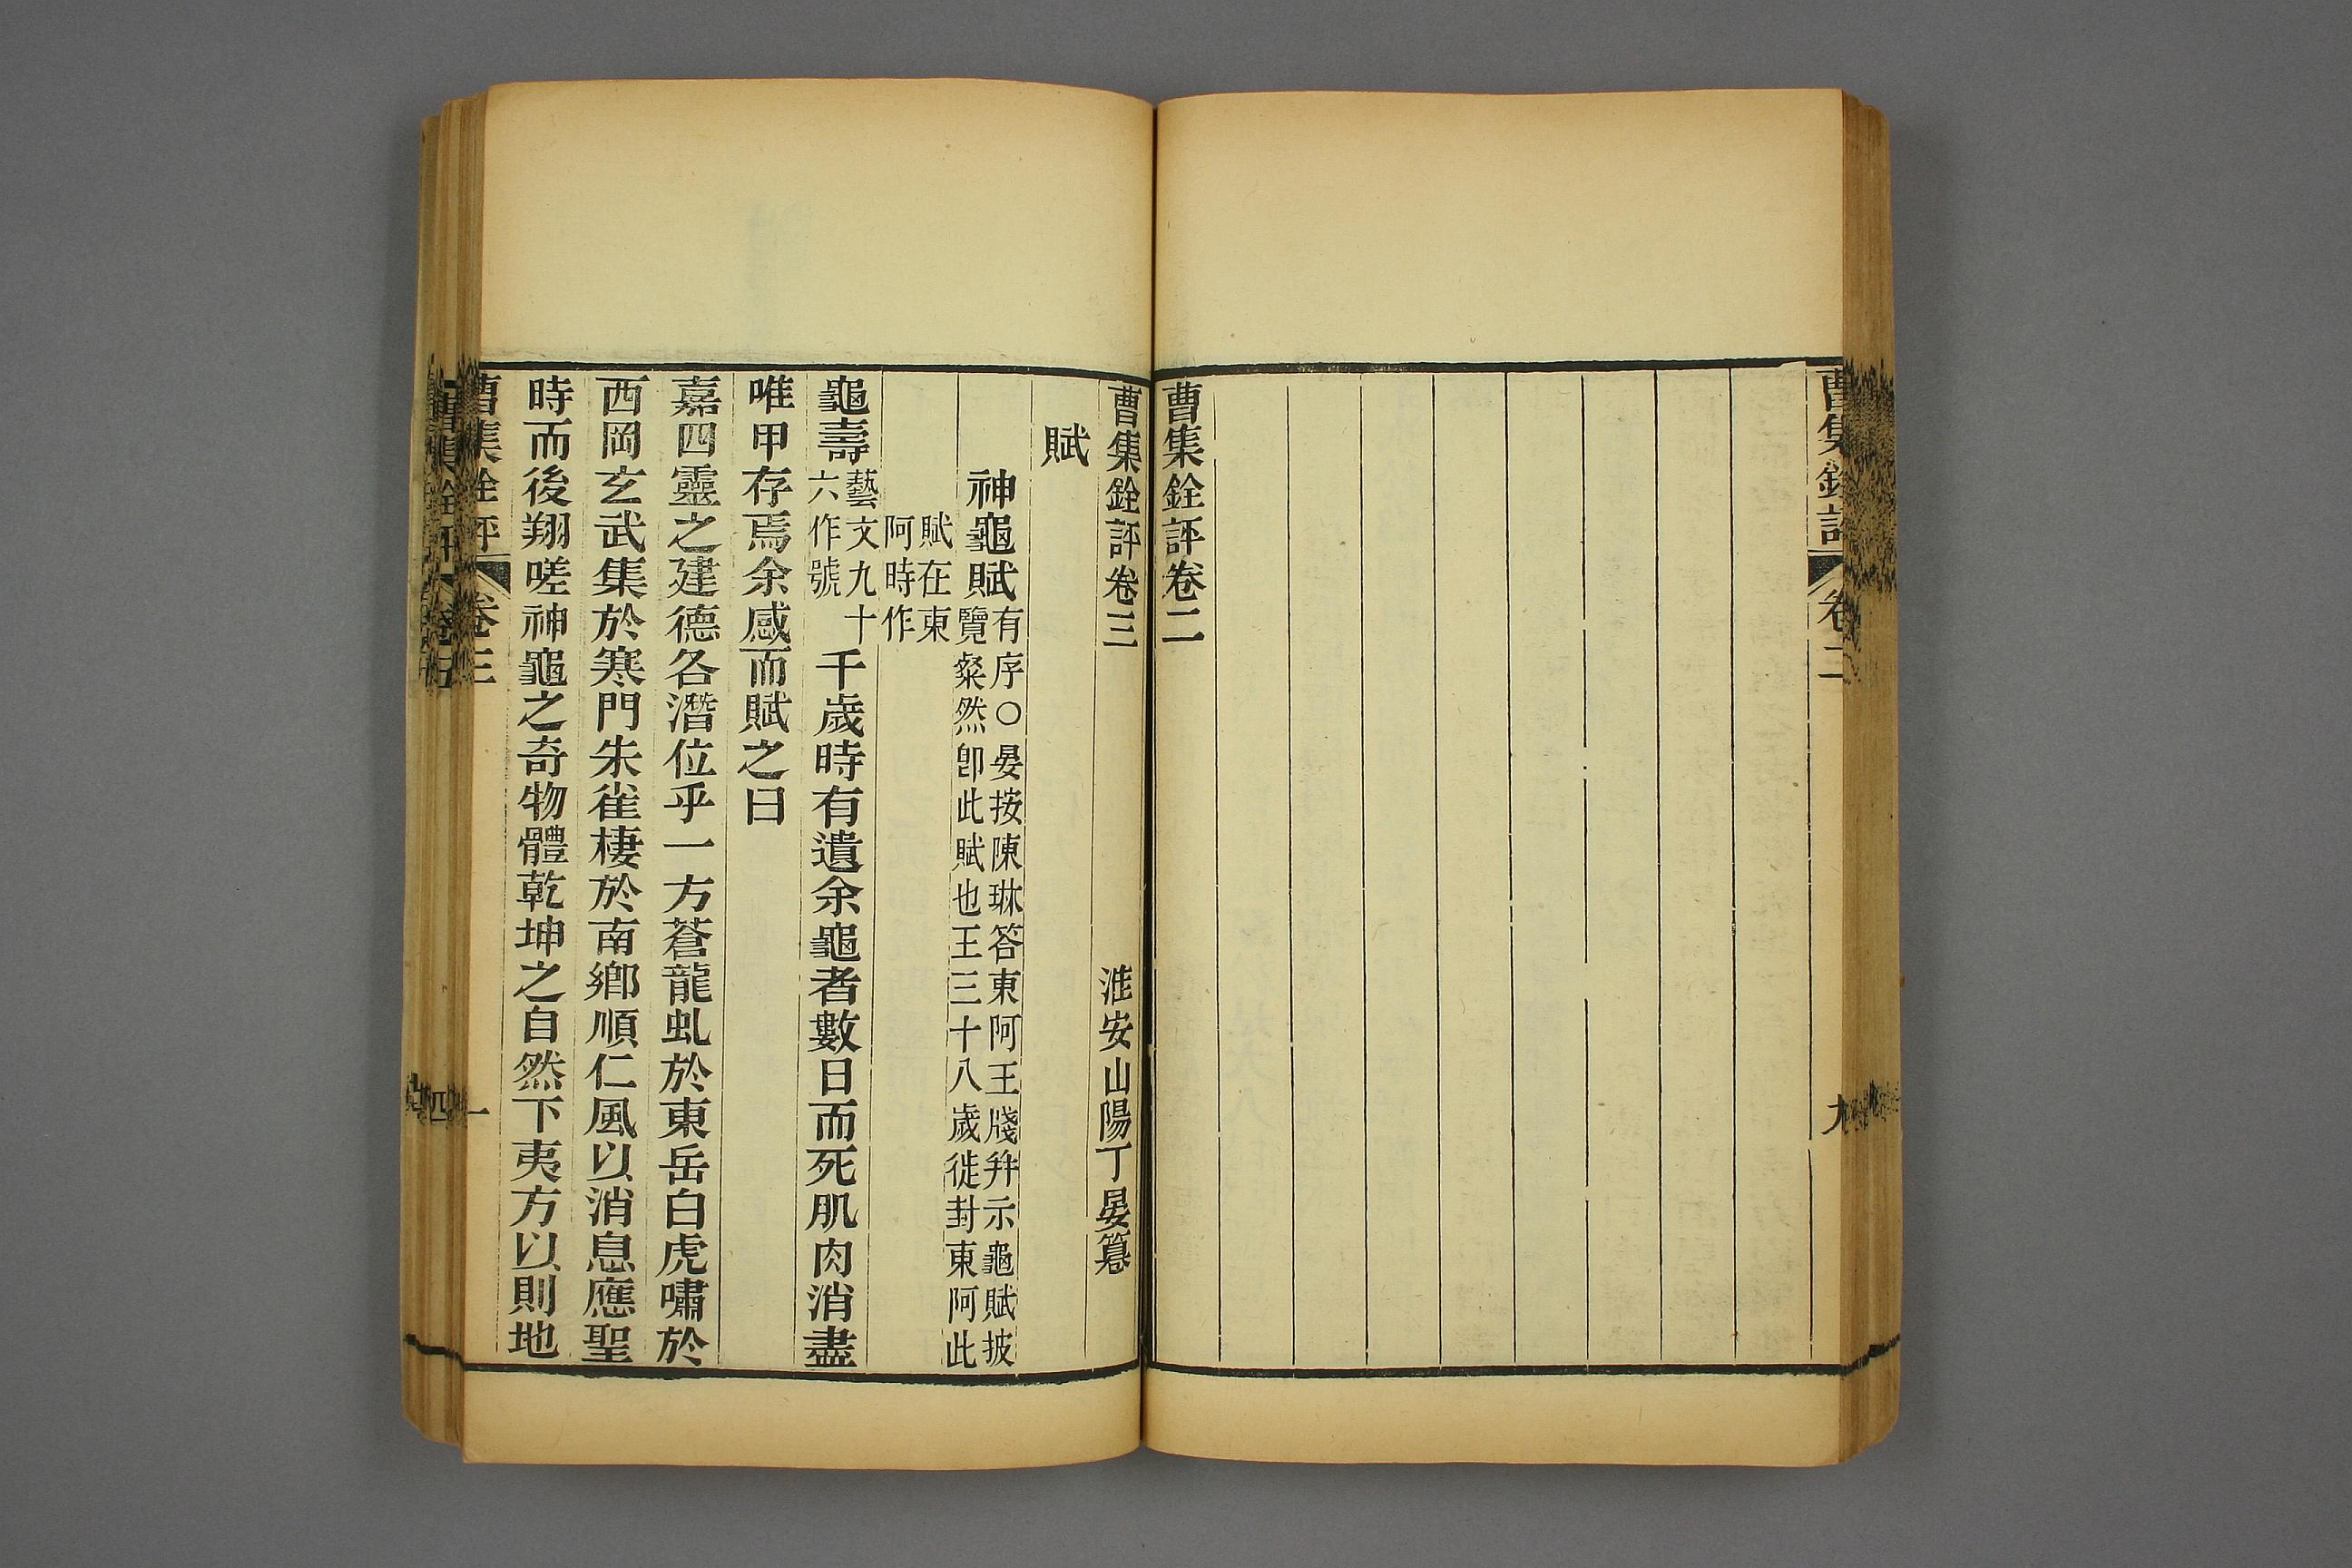 曹集銓評
卷二
九
曹集銓評卷二
曹集銓評卷三
淮安山陽丁晏纂
賦
神龜賦有序○晏按陳琳答東阿王牋幷示龜賦披
覽粲然卽此賦也王三十八歲徙封東阿此
賦在東
阿時作
龜壽藝文九十
六作號千歲時有遺余龜者數日而死肌肉消盡
唯甲存焉余感而賦之曰
嘉四靈之建德各潛位乎一方蒼龍虬於東岳白虎嘯於
西岡玄武集於寒門朱雀棲於南鄉順仁風以消息應聖
時而後翔嗟神龜之奇物體乾坤之自然下夷方以則地
曹集銓評
卷三
一